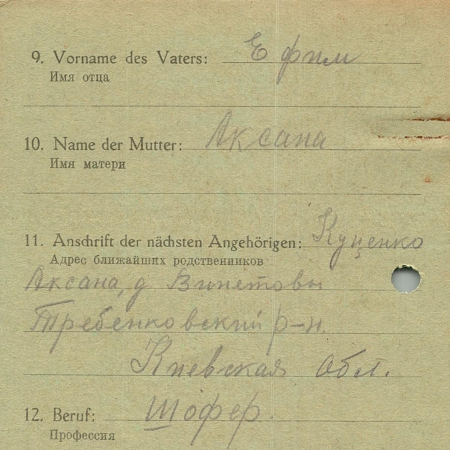 9. Vorname des Vaters: Ефим
Имя отца
10. Name der Mutter: Аксана
Имя матери
11. Anschrift der nächsten Angehörigen: Куценко
Адрес ближайших родственников
Аксана, д. Винетовы
Гребенковский р-н.
Киевская Обл.
12. Beruf: Шофер.
Профессия